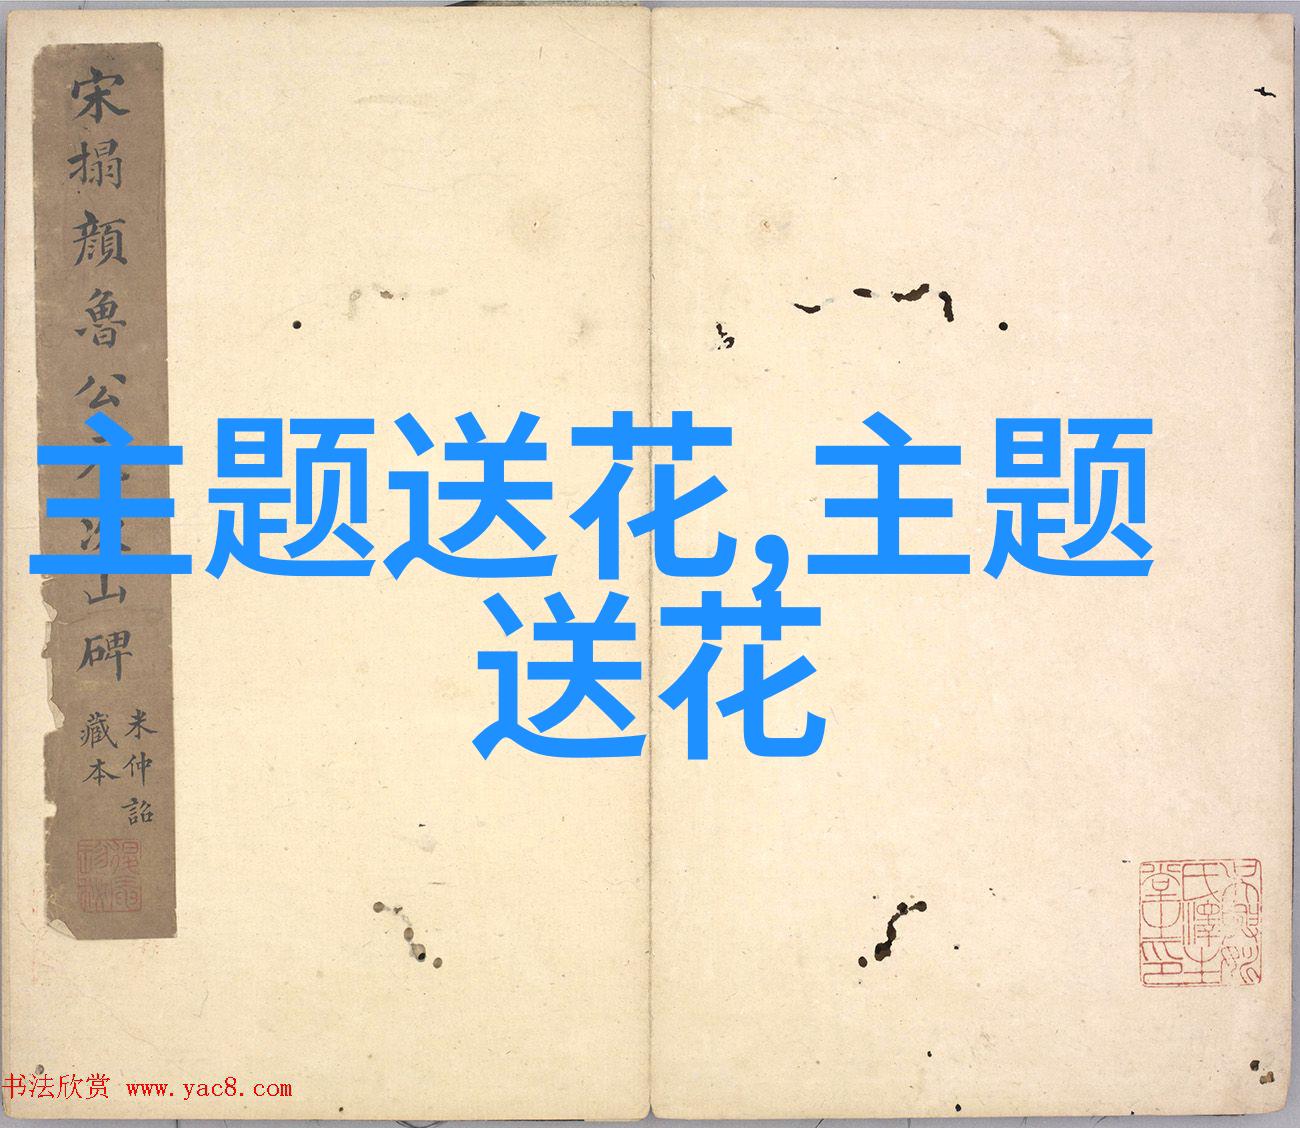 宋搨顔魯公元次山碑
米仲詔
藏本
主题送花,主题
送花
书法欣赏 www.yac8.com